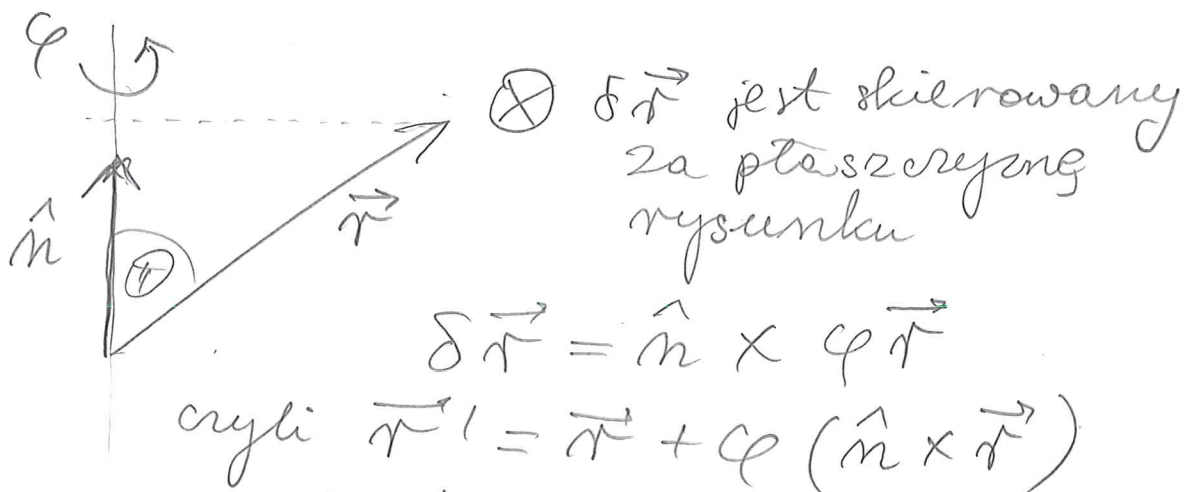 φ
⊗ δr⃗ jest skierowany
za płaszczyznę
rysunku
n̂
Θ
r⃗
δr⃗ = n̂ × φr⃗
czyli r⃗' = r⃗ + φ(n̂ × r⃗)